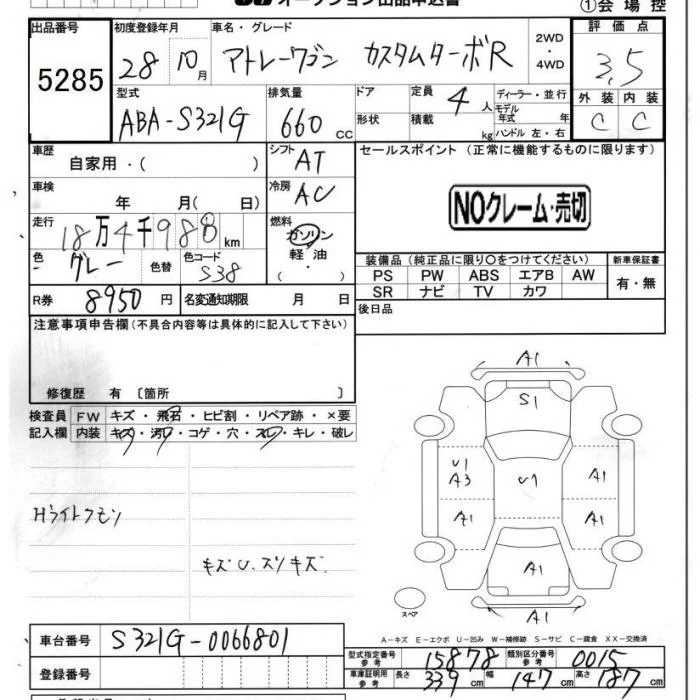 オークション出品申込書
①会場控
出品番号 初度登録年月 車名・グレード 評価点
5285 28 10月 アトレーワゴン カスタムターボR 2WD・4WD 3.5
型式 排気量 ドア 定員 4人 ディーラー・並行 外装 内装
ABA-S321G 660cc 形状 積載 kg モデル年式 年 ハンドル 左・右 C C
車歴 シフト セールスポイント (正常に機能するものに限ります)
自家用・( ) AT
車検 冷房
年 月( 日) AC NOクレーム・売切
走行 燃料
18万4千988km ガソリン
色 グレー 色替 色コード S38 軽油 ( ・ )
装備品 (純正品に限り○をつけてください) 新車保証書
PS PW ABS エアB AW 有・無
SR ナビ TV カワ
R券 8950円 名変通知期限 月 日 後日品
注意事項申告欄(不具合内容等は具体的に記入して下さい)
修復歴 有 〔箇所 〕
検査員 FW キズ・飛石・ヒビ割・リペア跡・×要
記入欄 内装 キズ・汚れ・コゲ・穴・スレ・キレ・破レ
A1
S1
U1
A3 U1 A1
A1 A1
A1
A1
Hライトクモリ
キズU.スリキズ
スペア
A-キズ E-エクボ U-凹み W-補修跡 S-サビ C-腐食 XX-交換済
車台番号 S321G-0066801
型式指定番号 参考 15878 類別区分番号 参考 0015
登録番号 車庫証明用 参考 長さ 339cm 幅 147cm 高さ 187cm